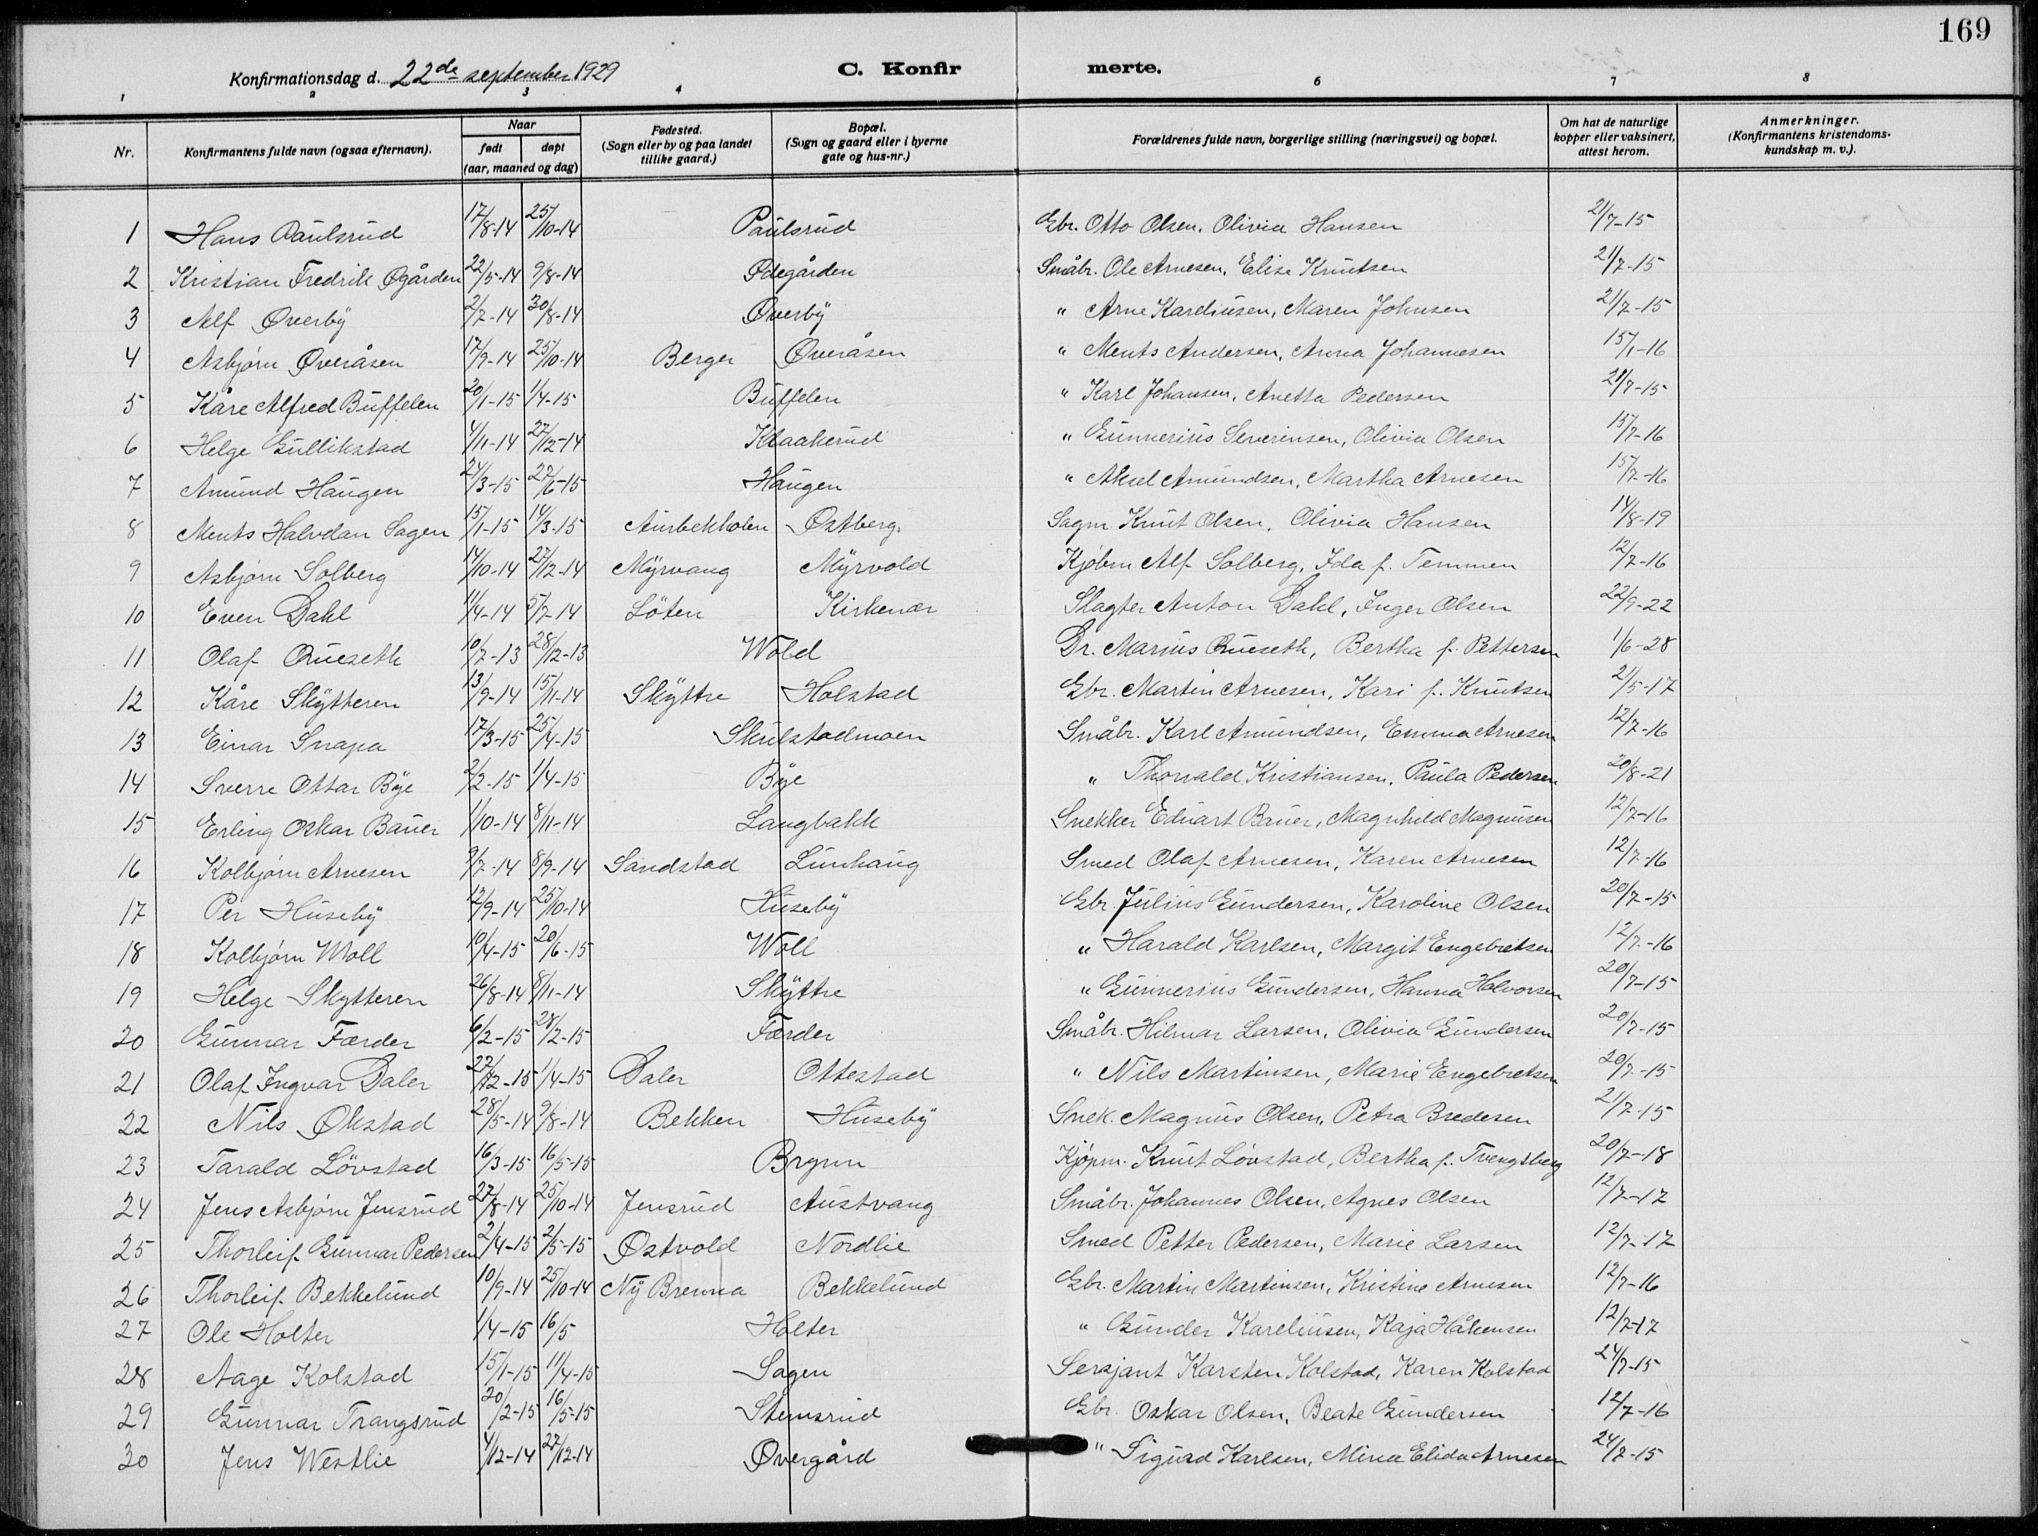 169
Konfirmationsdag d. 22de september 1929 C. Konfir merte.
1 2 3 4 6 7 8
Nr. Konfirmantens fulde navn (ogsaa efternavn). Naar født døpt (aar, maaned og dag) Fødested. (Sogn eller by og paa landet tillike gaard.) Bopæl. (Sogn og gaard eller i byerne gate og hus-nr.) Forældrenes fulde navn, borgerlige stilling (næringsvei) og bopæl. Om hat de naturlige kopper eller vaksinert, attest herom. Anmerkninger. (Konfirmantens kristendoms-kundskap m. v.).
1 Hans Paulsrud 17/8-14 25/10-14 Paulsrud Gbr. Otto Olsen, Olivia Hansen 21/7-15
2 Kristian Fredrik Øgården 22/5-14 9/8-14 Ødegården Småbr. Ole Arnesen, Elise Knutsen 21/7-15
3 Alf Øverby 2/7-14 30/8-14 Øverby " Arne Kareliusen, Maren Johnsen 21/7-15
4 Asbjørn Øveråsen 17/9-14 25/10-14 Berger Øveråsen " Ments Andersen, Anna Johannesen 15/1-16
5 Kåre Alfred Buffelen 20/1-15 1/4-15 Buffelen " Karl Johansen, Anetta Pedersen 21/7-15
6 Helge Gullikstad 4/11-14 27/12-14 Klaakerud " Gunnerius Severinsen, Olivia Olsen 15/7-16
7 Amund Haugen 24/3-15 27/6-15 Haugen " Aksel Amundsen, Martha Arnesen 15/7-16
8 Ments Halvdan Sagen 15/1-15 14/3-15 Aurbekholen Østberg Sagm. Knut Olsen, Olivia Hansen 14/8-19
9 Asbjørn Solberg 14/10-14 27/12-14 Myrvang Myrvold Kjøbm Alf Solberg, Ida f. Temmen 12/7-16
10 Even Dahl 11/4-14 5/7-14 Löten Kirkenær Slagter Anton Dahl, Inger Olsen 22/9-22
11 Olaf Queseth 10/7-13 28/12-13 Wold Dr. Marius Queseth, Bertha f. Pettersen 1/6-28
12 Kåre Skytteren 13/9-14 15/11-14 Skyttre Holstad Gbr. Martin Arnesen, Kari f. Knutsen 21/5-17
13 Einar Snapa 17/3-15 25/4-15 Skulstadmoen Småbr. Karl Amundsen, Emma Arnesen 12/7-16
14 Sverre Ottar Bye 2/2-15 1/4-15 Bye " Thorvald Kristiansen, Paula Pedersen 20/8-21
15 Erling Oskar Bauer 1/10-14 8/11-14 Langbakk Snekker Eduart Bauer, Magnhild Magnusen 12/7-16
16 Kolbjørn Arnesen 9/7-14 8/9-14 Sandstad Lunhaug Smed Olaf Arnesen, Karen Arnesen 12/7-16
17 Per Huseby 12/9-14 25/10-14 Huseby Gbr. Julius Gundersen, Karoline Olsen 20/7-15
18 Kolbjørn Woll 10/4-15 20/6-15 Woll " Harald Karlsen, Margit Engebretsen 12/7-16
19 Helge Skytteren 26/8-14 8/11-14 Skyttre " Gunnerius Gundersen, Hanna Halvorsen 20/7-15
20 Gunnar Færder 6/2-15 28/2-15 Færder Småbr. Hilmar Larsen, Olivia Gundersen 20/7-15
21 Olaf Ingvar Daler 22/12-15 1/4-15 Daler Ottestad " Nils Martinsen, Marie Engebretsen 20/7-15
22 Nils Økstad 28/5-14 9/8-14 Bekken Huseby Snek. Magnus Olsen, Petra Bredesen 21/7-15
23 Tarald Lövstad 16/3-15 16/5-15 Brynn Kjöpm. Knut Lövstad, Bertha f. Tvengsberg 20/7-18
24 Jens Asbjørn Jensrud 27/8-14 25/10-14 Jensrud Austvang Småbr. Johannes Olsen, Agnes Olsen 12/7-17
25 Thorleif Gunnar Pedersen 2/4-15 2/5-15 Østvold Nordlie Smed Petter Pedersen, Marie Larsen 12/7-17
26 Thorleif Bekkelund 10/9-14 25/10-14 Ny Brenna Bekkelund Gbr. Martin Martinsen, Kristine Arnesen 12/7-16
27 Ole Holter 1/4-15 16/5 Holter " Gunder Kareliusen, Kaja Håkensen 12/7-17
28 Aage Kolstad 15/1-15 11/4-15 Sagen Sersjant Karsten Kolstad, Karen Kolstad 24/7-15
29 Gunnar Trangsrud 20/2-15 16/5-15 Stemsrud Gbr. Oskar Olsen, Beate Gundersen 12/7-16
30 Jens Westlie 4/12-14 27/12-14 Øvergård " Sigurd Karlsen, Mina Elida Arnesen 24/7-15